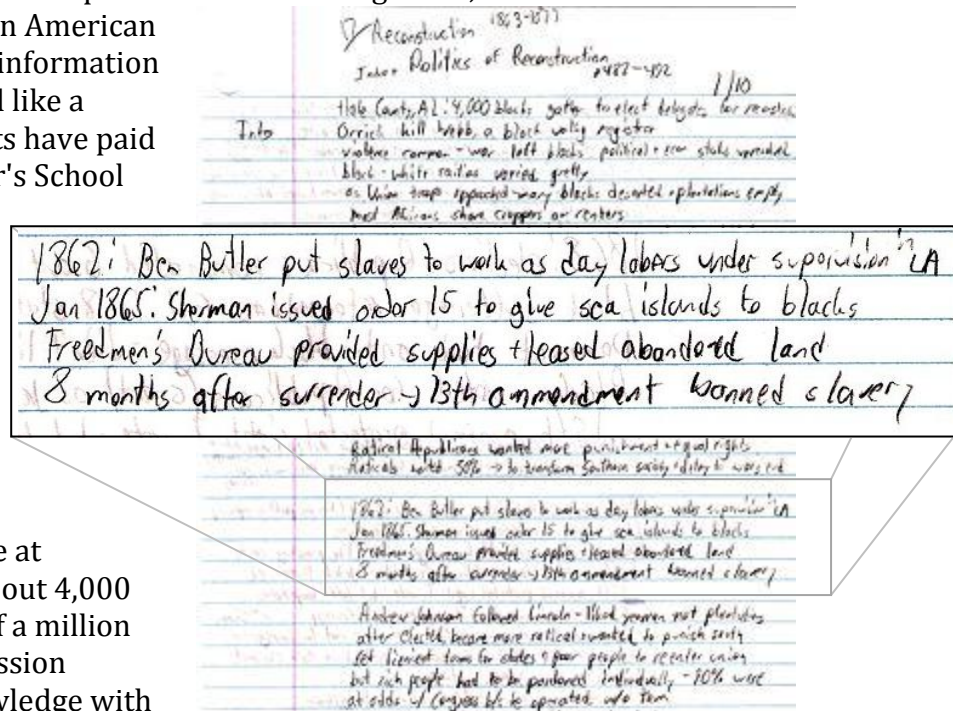 n American
information
d like a
ts have paid
r's School
e at
out 4,000
f a million
ssion
wledge with
Reconstruction 1863-1877
Politics of Reconstruction
p482-492
1/10
Hale County, AL: 4,000 blacks gather to elect delegates for
Intro
Orrick hill webb, a black voting registrar
violence common - war left blacks political + econ status
black - white varied greatly
as Union troops approached many blacks deserted plantations empty
most share croppers or renters
1862: Ben Butler put slaves to work as day labors under in LA
Jan 1865: Sherman issued order 15 to give sea islands to blacks
Freedmen's Bureau provided supplies + leased land
8 months after surrender → 13th ammendment banned slavery
Radical Republicans wanted more punishment + equal rights
Radicals 50% → to transform Southern society + delay
1862: Ben Butler put slaves to work as day labors under in LA
Jan 1865: Sherman issued order 15 to give sea islands to blacks
Freedmen's Bureau provided supplies + leased land
8 months after surrender → 13th ammendment banned slavery
Andrew Johnson followed Lincoln - liked yeomen not
after elected, became more radical + wanted to punish
set terms for states + poor people to reenter union
but rich people had to be pardoned individually - 90% were
at odds w/ Congress b/c he operated w/o them